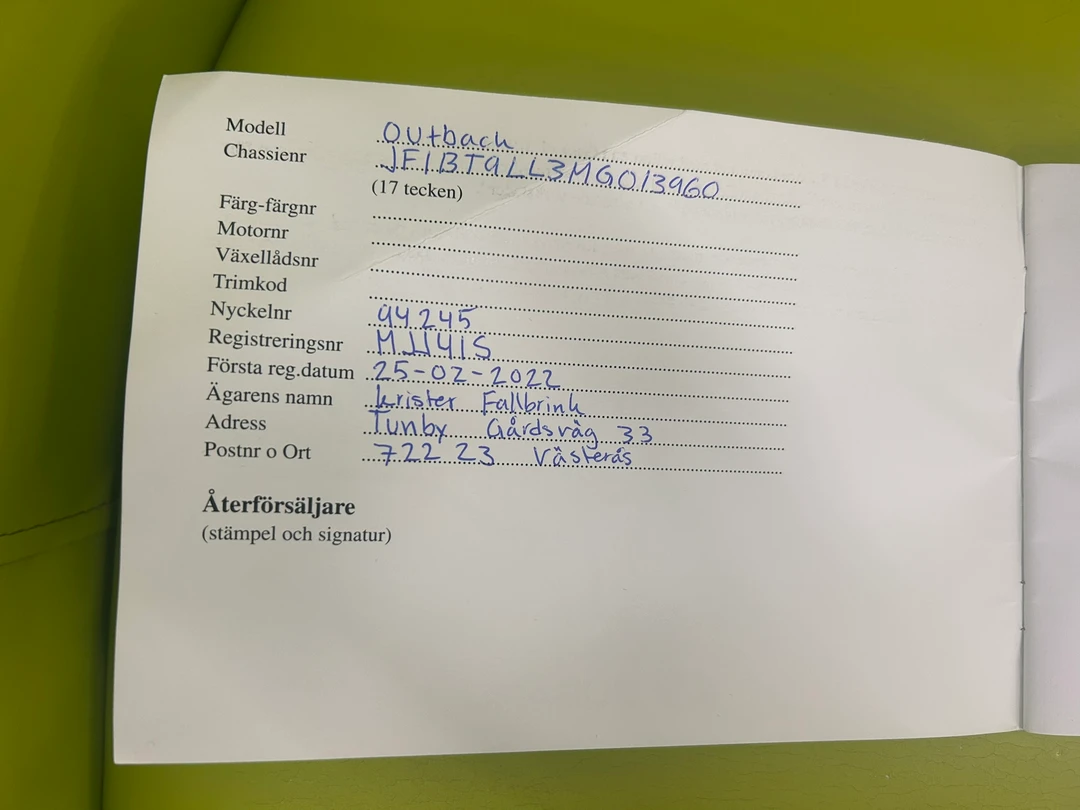 Modell Outback
Chassienr JF1BT9LL3MG013960
(17 tecken)
Färg-färgnr
Motornr
Växellådsnr
Trimkod
Nyckelnr 94245
Registreringsnr MJJ41S
Första reg.datum 25-02-2022
Ägarens namn Krister Fallbrink
Adress Tunby Gårdsväg 33
Postnr o Ort 722 23 Västerås
Återförsäljare
(stämpel och signatur)